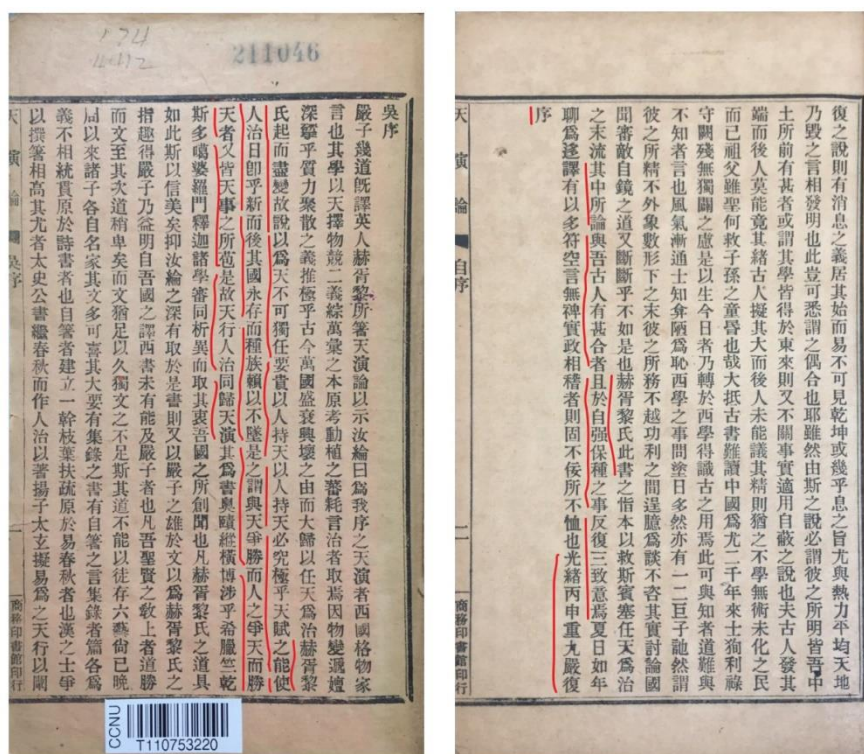 211046
吳序
嚴子幾道既譯英人赫胥黎所箸天演論以示汝綸曰爲我序之天演者西國格物家
言也其學以天擇物競二義綜萬彙之本原考動植之蕃耗言治者取焉因物變遞嬗
深揅乎質力聚散之義推極乎古今萬國盛衰興壞之由而大歸以任天爲治赫胥黎
氏起而盡變故說以爲天不可獨任要貴以人持天以人持天必究極乎天賦之能使
人治日卽乎新而後其國永存而種族賴以不墜是之謂與天爭勝而人之爭天而勝
天者又皆天事之所苞是故天行人治同歸天演其爲書奧賾縱橫博涉乎希臘竺乾
斯多噶婆羅門釋迦諸學審同析異而取其衷吾國之所創聞也凡赫胥黎氏之道具
如此斯以信美矣抑汝綸之深有取於是書則又以嚴子之雄於文以爲赫胥黎氏之
指趣得嚴子乃益明自吾國之譯西書未有能及嚴子者也凡吾聖賢之敎上者道勝
而文至其次道稍卑矣而文猶足以久獨文之不足斯其道不能以徒存六藝尙已晚
周以來諸子各自名家其文多可喜其大要有集錄之書有自箸之言集錄者篇各爲
義不相統貫原於詩書者也自箸者建立一幹枝葉扶疏原於易春秋者也漢之士爭
以撰箸相高其尤者太史公書繼春秋而作人治以著揚子太玄擬易爲之天行以闡
天演論 吳序 一 商務印書館印行
CCNU
T110753220
復之說則有消息之義居其始而易不可見乾坤或幾乎息之旨尤與熱力平均天地
乃毀之言相發明也此豈可悉謂之偶合也耶雖然由斯之說必謂彼之所明皆吾中
土所前有甚者或謂其學皆得於東來則又不關事實適用自蔽之說也夫古人發其
端而後人莫能竟其緒古人擬其大而後人未能議其精則猶之不學無術未化之民
而已祖父雖聖何救子孫之童昏也哉大抵古書難讀中國爲尤二千年來士徇利祿
守闕殘無獨闢之慮是以生今日者乃轉於西學得識古之用焉此可與知者道難與
不知者言也風氣漸通士知弇陋爲恥西學之事問塗日多然亦有一二巨子訑然謂
彼之所精不外象數形下之末彼之所務不越功利之間逞臆爲談不咨其實討論國
聞審敵自鏡之道又斷斷乎不如是也赫胥黎氏此書之恉本以救斯賓塞任天爲治
之末流其中所論與吾古人有甚合者且於自强保種之事反復三致意焉夏日如年
聊爲迻譯有以多符空言無裨實政相稽者則固不佞所不恤也光緒丙申重九嚴復
序
天演論 自序 二 商務印書館印行